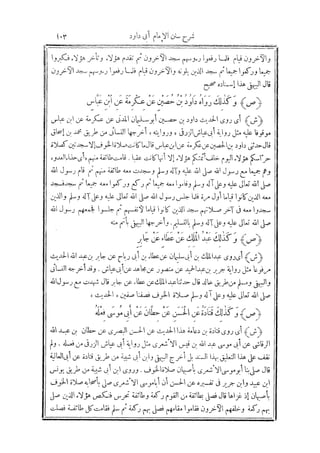 شرح سنن الإمام أبى داود ١٠٣
والآخرون قيام فلما رفعوا رءوسهم سجد الآخرون ثم تقدم هؤلاء وتأخر هؤلاء فكبروا
جميعا وركعوا جميعا ثم سجد الذين يلونه والآخرون قيام فلما رفعوا رءوسهم سجد الآخرون
قال البيهقى هذا إسناده صحيح
(ص) وَكَذٰلِكَ رَوَاهُ دَاوُدُ بْنُ حُصَيْنٍ عَنْ عِكْرِمَةَ عَنِ ابْنِ عَبَّاسٍ
(ش) أى روى الحديث داود بن حصين أبو سليمان المدنى عن عكرمة عن ابن عباس
موقوفا عليه مثل رواية أبى عياش الزرقى، وروايته، أخرجها النسائى من طريق محمد بن إسحاق
قال حدثنى داود بن الحصين عن عكرمة عن ابن عباس قال ما كانت صلاة الخوف إلا سجدتين كصلاة
حراسكم هؤلاء اليوم خلف أئمتكم هؤلاء إلا أنها كانت عقبا. قامت طائفة منهم
وهم جميعا مع رسول الله صلى الله عليه وآله وسلم وسجدت معه طائفة منهم ثم قام رسول الله
صلى الله تعالى عليه وعلى آله وسلم وقاموا معه جميعا ثم ركع وركعوا معه جميعا ثم سجد فسجد
معه الذين كانوا قياما أول مرة فلما جلس رسول الله صلى الله تعالى عليه وعلى آله وسلم والذين
سجدوا معه فى آخر صلاتهم سجد الذين كانوا قياما لأنفسهم ثم جلسوا فجمعهم رسول الله
صلى الله تعالى عليه وعلى آله وسلم بالتسليم. وأخرجها البيهقى بأتم منه
(ص) وَكَذٰلِكَ عَبْدُ الْمَلِكِ عَنْ عَطَاءٍ عَنْ جَابِرٍ
(ش) أى وروى عبد الملك بن أبى سليمان عن عطاء بن أبى رباح عن جابر بن عبد الله الحديث
مرفوعا مثل رواية جرير بن عبد الحميد عن منصور عن مجاهد عن أبى عياش. وقد أخرجه النسائى
والبيهقى ومسلم من طريق قال حدثنا عبد الملك عن عطاء عن جابر قال شهدت مع رسول الله
صلى الله تعالى عليه وعلى آله وسلم صلاة الخوف فصفنا صفين، الحديث،
(ص) وَكَذٰلِكَ قَتَادَةُ عَنِ الْحَسَنِ عَنْ حِطَّانَ عَنْ أَبِى مُوسَى فِعْلَهُ
(ش) أى روى قتادة بن دعامة هذا الحديث عن الحسن البصرى عن حطان بن عبد الله
الرقاشى عن أبى موسى عبد الله بن قيس الأشعرى مثل رواية أبى عياش الزرقى من فعله. ولم
نقف على هذا التعليق بهذا السند بل أخرج البيهقى وابن أبى شيبة من طريق قتادة عن أبى العالية
قال صلى بنا أبو موسى الأشعرى بأصبهان صلاة الخوف. وروى ابن أبى شيبة من طريق يونس
ابن عبيد وابن جرير فى تفسيره عن الحسن أن أبا موسى الأشعرى صلى بأصحابه صلاة الخوف
بأصبهان إذ غزاها قال فصلى بطائفة من القوم ركعة وطائفة تحرس فنكص هؤلاء الذين صلى
بهم ركعة وخلفهم الآخرون فقاموا مقامهم فصلى بهم ركعة ثم سلم فقامت كل طائفة فصلت